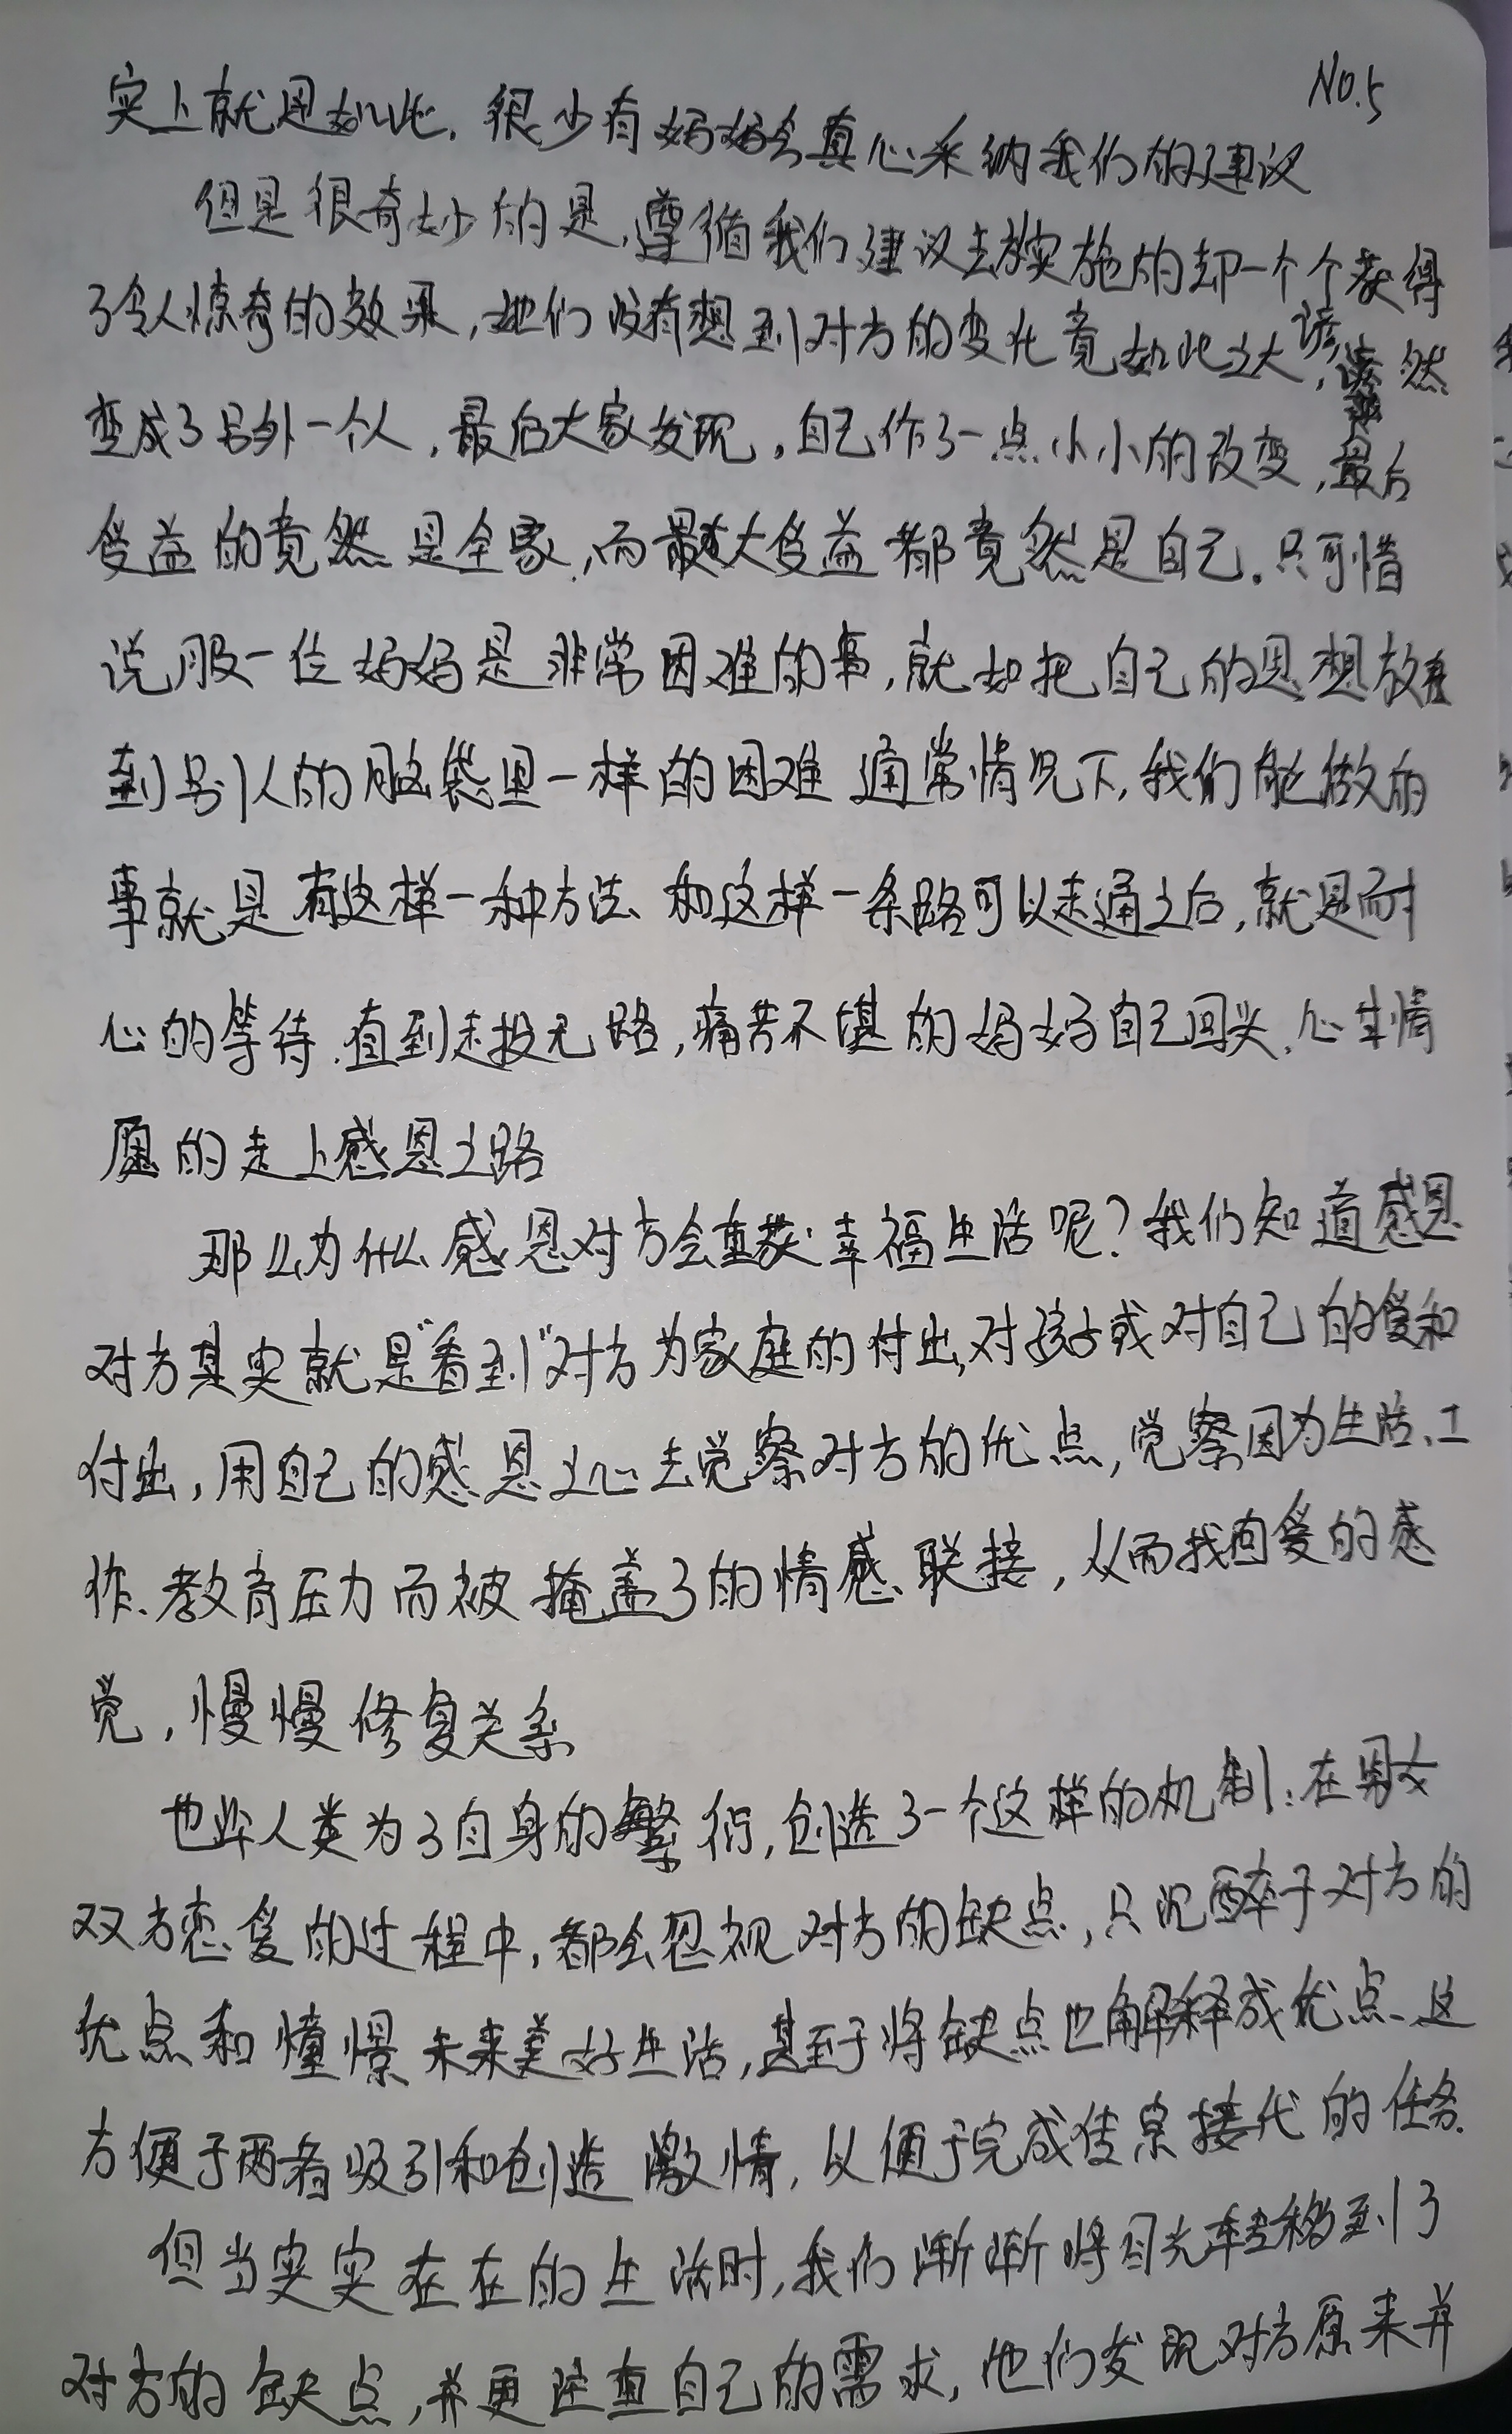 NO.5
实上就是如此.很少有妈妈会真心采纳我们的建议
但是很奇妙的是,遵循我们建议去实施的却一个个获得
了令人惊奇的效果,她们没有想到对方的变化竟如此之大,然
变成了另外一个人,最后大家发现,自己作了一点小小的改变,最后
受益的竟然是全家,而最大受益都竟然是自己.只可惜
说服一位妈妈是非常困难的事,就如把自己的思想放
到别人的脑袋里一样的困难 通常情况下,我们能做的
事就是有这样一种方法、和这样一条路可以走通之后,就是耐
心的等待.直到走投无路,痛苦不堪的妈妈自己回头.心生情
愿的走上感恩之路
那么为什么感恩对方会重获幸福生活呢?我们知道感恩
对方其实就是"看到"对方为家庭的付出,对孩子或对自己的爱和
付出,用自己的感恩之心去觉察对方的优点,觉察因为生活、工
作、教育压力而被掩盖了的情感联接,从而找回爱的感
觉,慢慢修复关系
也许人类为了自身的繁衍,创造了一个这样的机制:在男女
双方恋爱的过程中,都会忽视对方的缺点,只沉醉于对方的
优点和憧憬未来美好生活,甚至于将缺点也解释成优点、这
方便于两者吸引和创造激情,以便于完成传宗接代的任务.
但当实实在在的生活时,我们渐渐将目光转移到了
对方的缺点,并更注重自己的需求,他们发现对方原来并